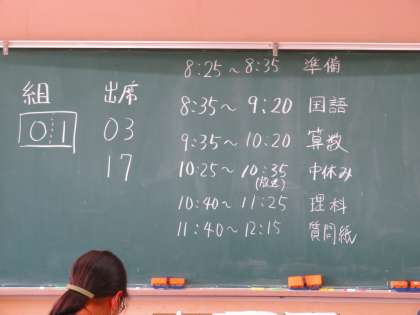 組
01
出席
03
17
8:25～8:35 準備
8:35～9:20 国語
9:35～10:20 算数
10:25～10:35 中休み
(放送)
10:40～11:25 理科
11:40～12:15 質問紙